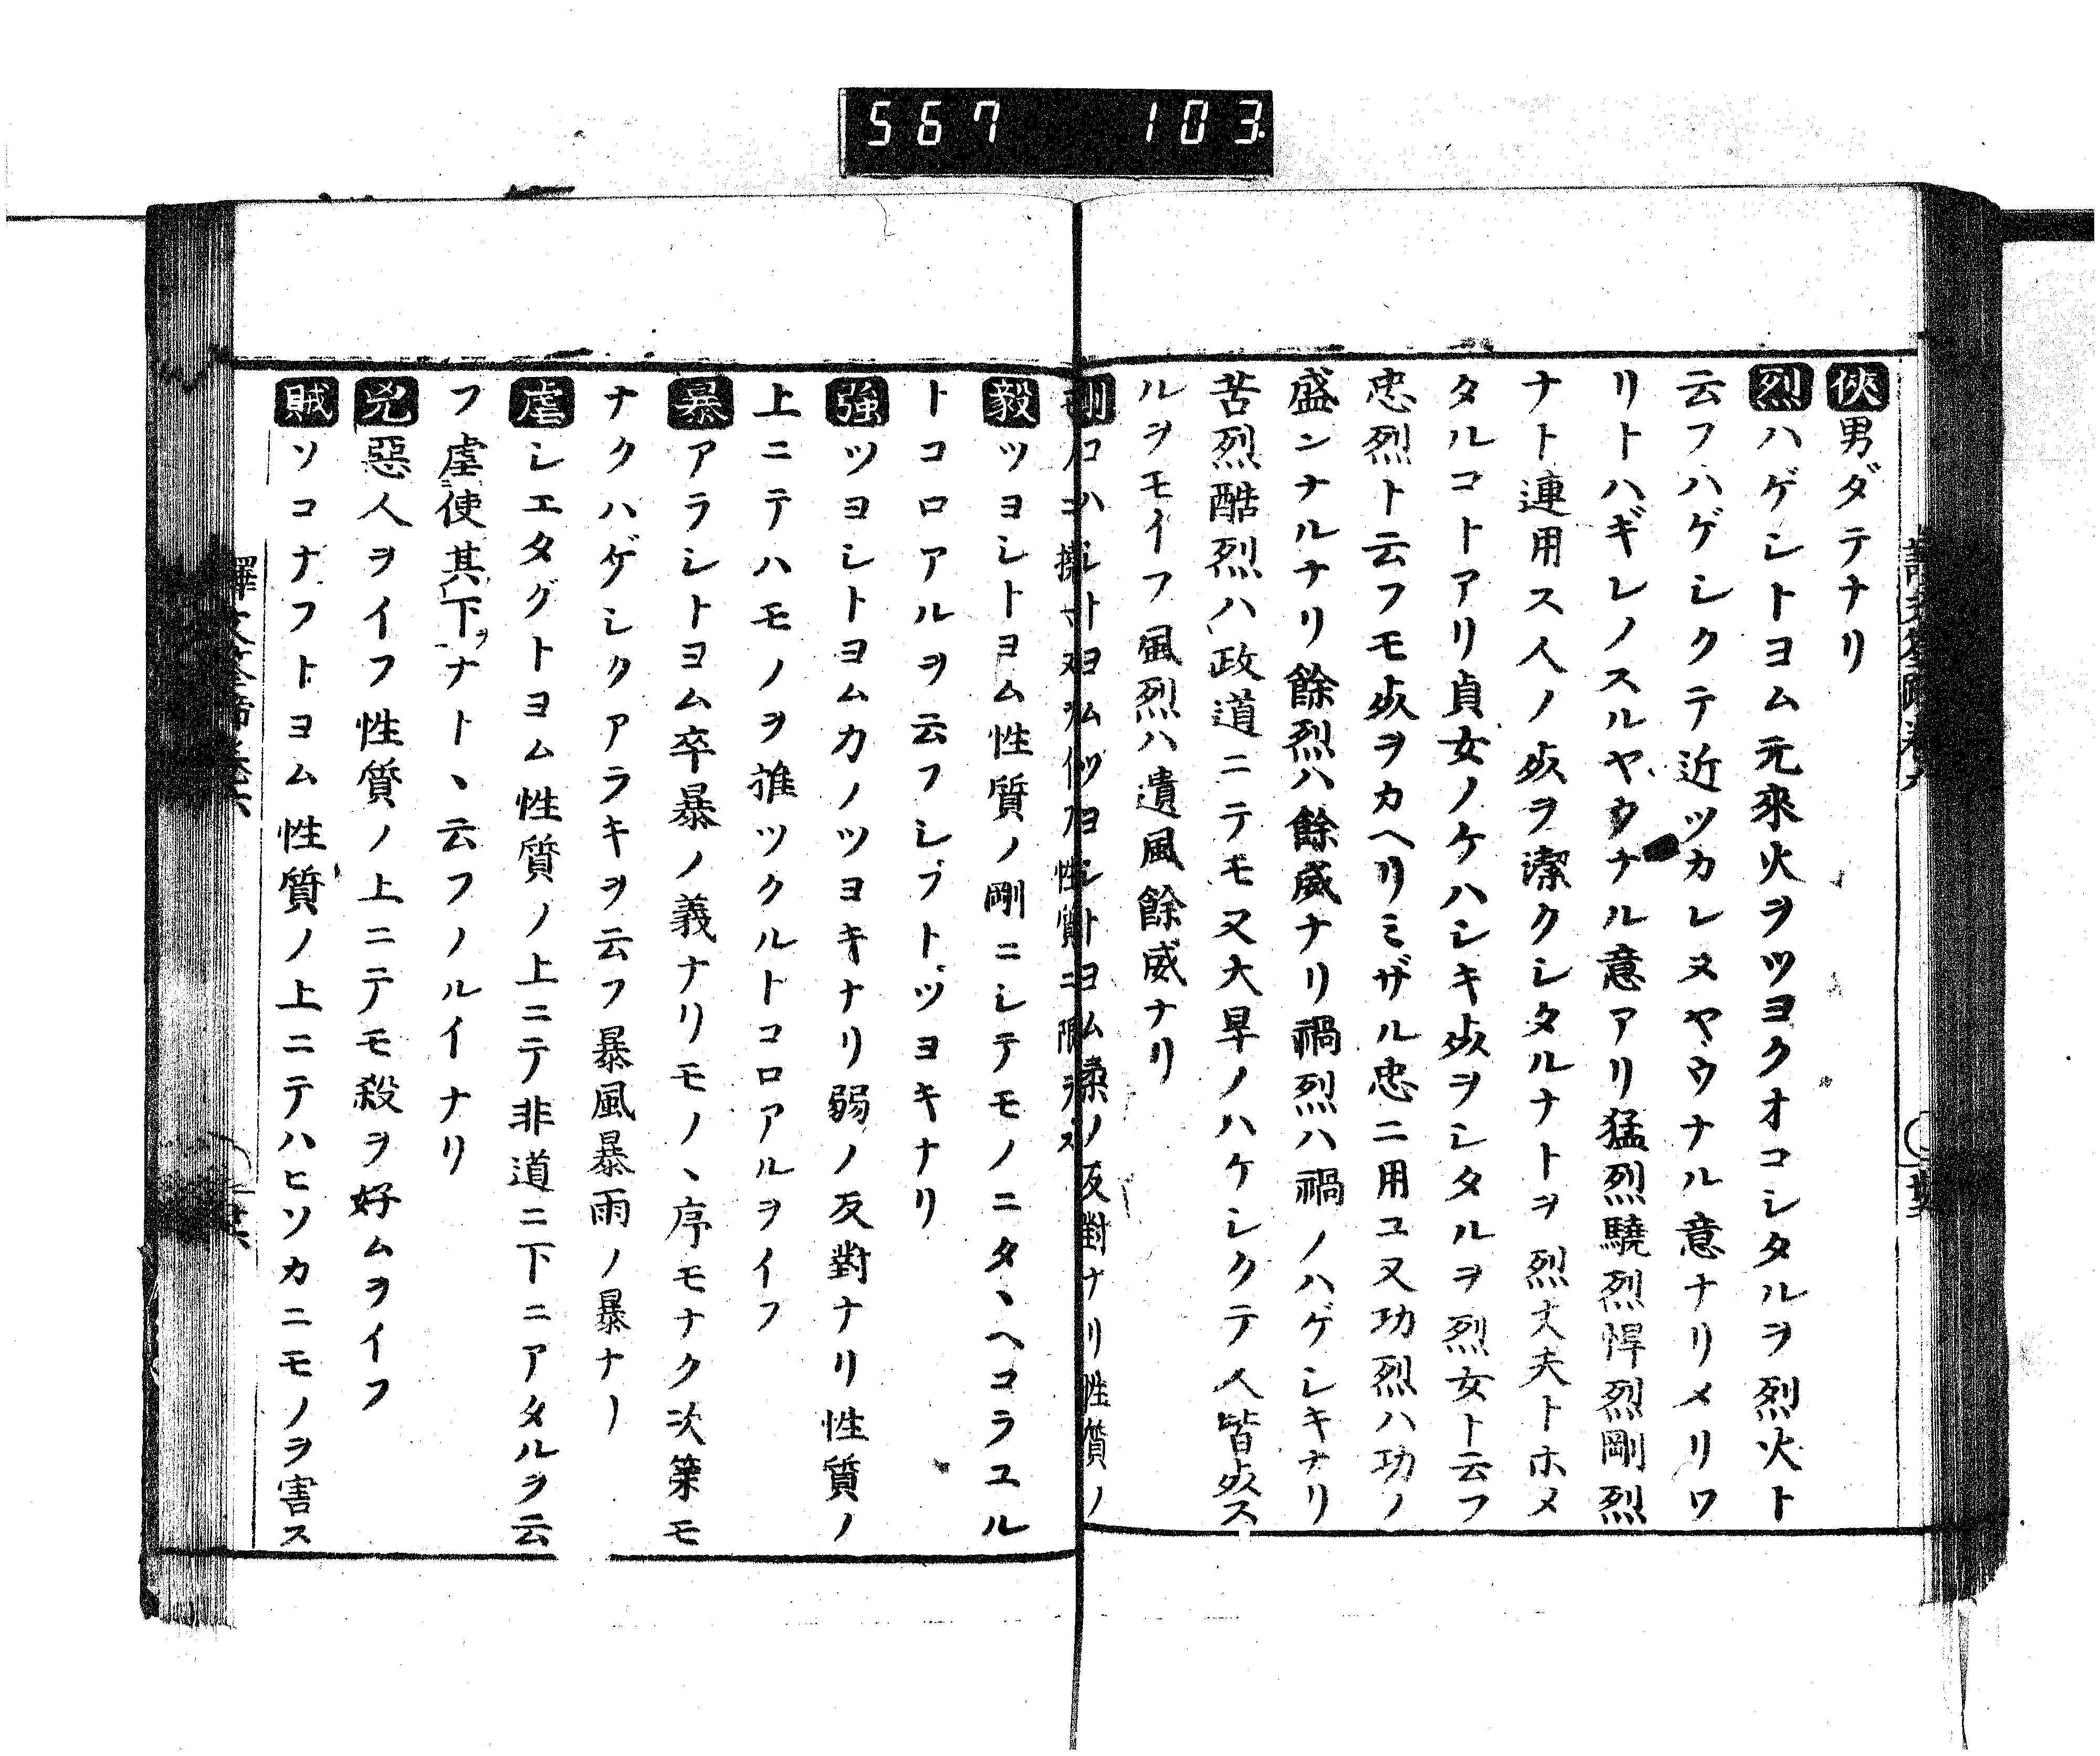 567 103.
俠男ダテナリ
烈ハゲシトヨム元來火ヲツヨクオコシタルヲ烈火ト
云フハゲシクテ近ツカレヌヤウナル意ナリメリワ
リトハギレノスルヤウナル意アリ猛烈驍烈悍烈剛烈
ナト連用ス人ノ死ヲ潔クシタルナトヲ烈丈夫トホメ
タルコトアリ貞女ノケハシキ死ヲシタルヲ烈女ト云フ
忠烈ト云フモ死ヲカヘリミザル忠ニ用ユ又功烈ハ功ノ
盛ンナルナリ餘烈ハ餘威ナリ禍烈ハ禍ノハゲシキナリ
苦烈酷烈ハ政道ニテモ又大旱ノハケシクテ人皆死ス
ルヲモイフ風烈ハ遺風餘威ナリ
剛コハシトヨムツヨシトヨム柔ノ反對ナリ性質ノ
性質ニ限ラス
毅ツヨシトヨム性質ノ剛ニシテモノニタヽヘコラユル
トコロアルヲ云フシブトヅヨキナリ
強ツヨシトヨムカノツヨキナリ弱ノ反對ナリ性質ノ
上ニテハモノヲ推ツクルトコロアルヲイフ
暴アラシトヨム卒暴ノ義ナリモノヽ序モナク次第モ
ナクハゲシクアラキヲ云フ暴風暴雨ノ暴ナリ
虐シエタグトヨム性質ノ上ニテ非道ニ下ニアタルヲ云
フ虐使其下ヲナトヽ云フノルイナリ
兇惡人ヲイフ性質ノ上ニテモ殺ヲ好ムヲイフ
賊ソコナフトヨム性質ノ上ニテハヒソカニモノヲ害ス